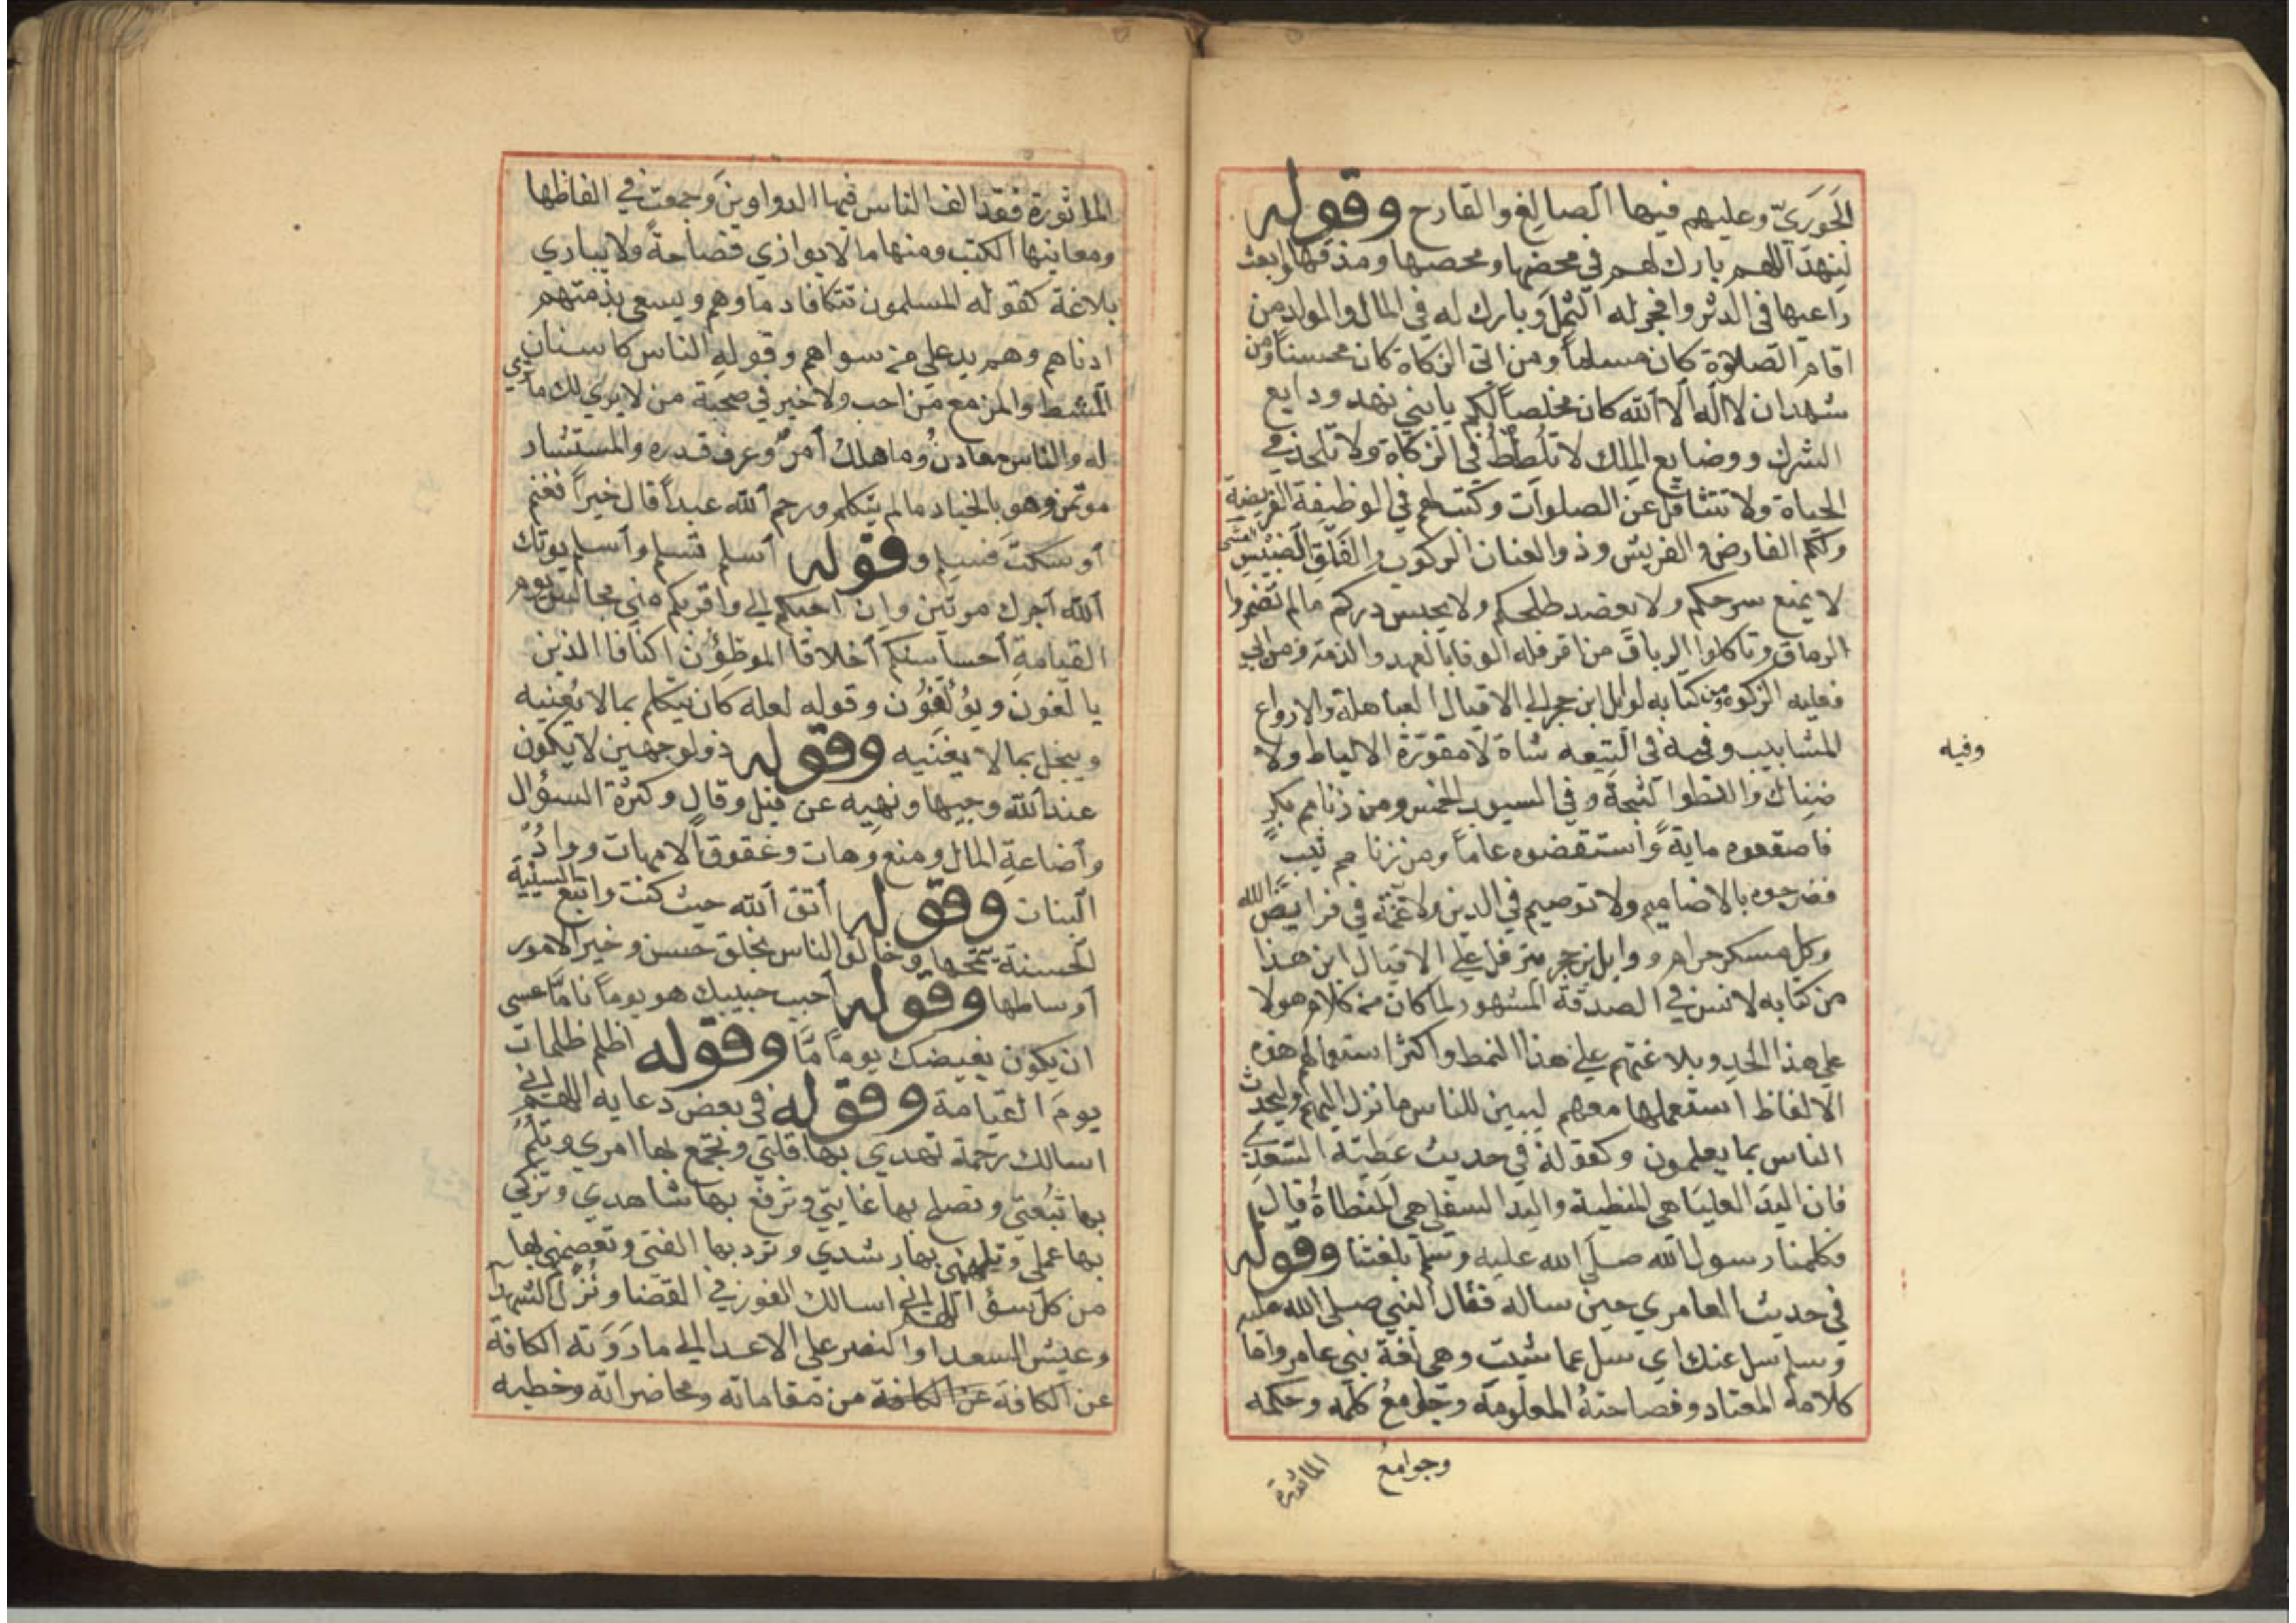 الحَوَريّ وعليهم فيها الصالغ والقارح وقوله
لنهد اللهم بارك لهم في محضها ومخضها ومذقها وابعث
راعيها في الدثر وافجر له الثمل وبارك له في المال والولد من
اقام الصلاوة كان مسلماً ومن اتى الزكاة كان محسناً ومن
شهد ان لا اله الا الله كان مخلصاً لكم يا بني نهد ودايع
الشرك ووضايع الملك لا تلطط في الزكاة ولا تلحد في
الحياة ولا تتثاقل عن الصلوات وكتب لهم في الوظيفة الفريضة
ولكم الفارض والفريش وذو العنان الركوب والفلق الضبيس
لا يمنع سرحكم ولا يعضد طلحكم ولا يحبس دركم مالم تضمروا
الرماق وتاكلوا الرباق من اقر فله الوفا بالعهد والذمة ومن ابى
فعليه الزكوة ومن كتابه لوايل ابن حجر الي الاقيال العباهلة والارواع
المشابيب وفيه في التيعه شاة لا مقورة الالياط ولا
ضناك وانطوا الثبجة وفي السيوب الخمس ومن زنا مم بكرٍ
فاصقعوه ماية واستوفضوه عاماً ومن زنا مم ثيبٍ
فضرجوه بالاضاميم ولا توصيم في الدين ولا غمة في فرايض الله
وكل مسكر حرام ووايل بن حجر يترفل علي الاقيال اين هذا
من كتابه لانس في الصدقة المشهور لما كان من كلام هولا
علي هذا الحد وبلاغتهم علي هذا النمط واكثر استعمالهم هذه
الالفاظ استعملها معهم ليبين للناس ما نزل اليهم وليحدث
الناس بما يعلمون وكقوله في حديث عطية السعدي
فان اليد العليا هي المنطية واليد السفلي هي المنطاة قال
فكلمنا رسول الله صلي الله عليه وسلم بلغتنا وقوله
في حديث العامري حين ساله فقال النبي صلي الله عليه
وسلم سل عنك اي سل عما شيت وهي لغة بني عامر واما
كلامه المعتاد وفصاحته المعلومة وجوامع كلمه وحكمه
وفيه
وجوامع
الماثورة
الماثورة فقد الف الناس فيها الدواوين وجمعت في الفاظها
ومعانيها الكتب ومنها ما لا يوازي فصاحةً ولا يباري
بلاغة كقوله المسلمون تتكافا دماوهم ويسعى بذمتهم
ادناهم وهم يد علي من سواهم وقوله الناس كاسنان
المشط والمرء مع من احب ولا خير في صحبة من لا يري لك ما تري
له والناس معادن وما هلك أمرٌ وعرف قدره والمستشار
موتمن وهو بالخيار مالم يتكلم ورحم الله عبداً قال خيراً فغنم
أو سكت فسلم وقوله أسلم تسلم وأسلم يوتك
الله اجرك مرتين وإن احبكم الي واقربكم مني مجالس يوم
القيامة أحاسنكم أخلاقا الموطؤن اكنافا الذين
يالفون ويؤلفون وقوله لعله كان يتكلم بما لا يعنيه
ويبخل بما لا يغنيه وقوله ذو الوجهين لا يكون
عند الله وجيها ونهيه عن قيل وقال وكثرة السؤال
وأضاعة المال ومنع وهات وعقوق الامهات وواد
البنات وقوله أتق الله حيث كنت واتبع السيئة
الحسنة تمحها وخالق الناس بخلق حسن وخير الامور
أوساطها وقوله أحبب حبيبك هو يوماً ناما عسى
ان يكون بغيضك يوماً مّا وقوله الظلم ظلمات
يوم القيامة وقوله في بعض دعايه اللهم اني
اسالك رحمة تهدي بها قلبي وتجمع بها امري وتلم
بها شعثي وتصلح بها غايبي وترفع بها شاهدي وتزكي
بها عملي وتلهمني بها رشدي وترد بها الفتي وتعصمني بها
من كل سؤ اللهم اني اسالك الفوز في القضا ونُزُل الشهدا
وعيش السعدا والنصر علي الاعدا الي ما رَوَته الكافة
عن الكافة عن الكافة من مقاماته ومحاضراته وخطبه